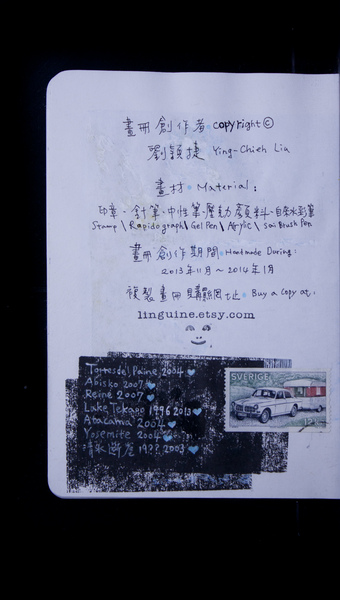 畫冊創作者 copyright ©
劉穎捷 Ying-Chieh Liu
畫材 Material:
印章、針筆、中性筆、壓克力顏料、自來水彩筆
Stamp \ Rapidograph \ Gel Pen \ Acrylic \ Sai Brush Pen
畫冊創作期間 Handmade During:
2013年11月~2014年1月
複製畫冊購買網址 Buy a copy at:
linguine.etsy.com
Torres del Paine 2004
Abisko 2007
Reine 2007
Lake Tekapo 1996 2013
Atacama 2004
Yosemite 2004
清水斷崖 19?? 2003
SVERIGE